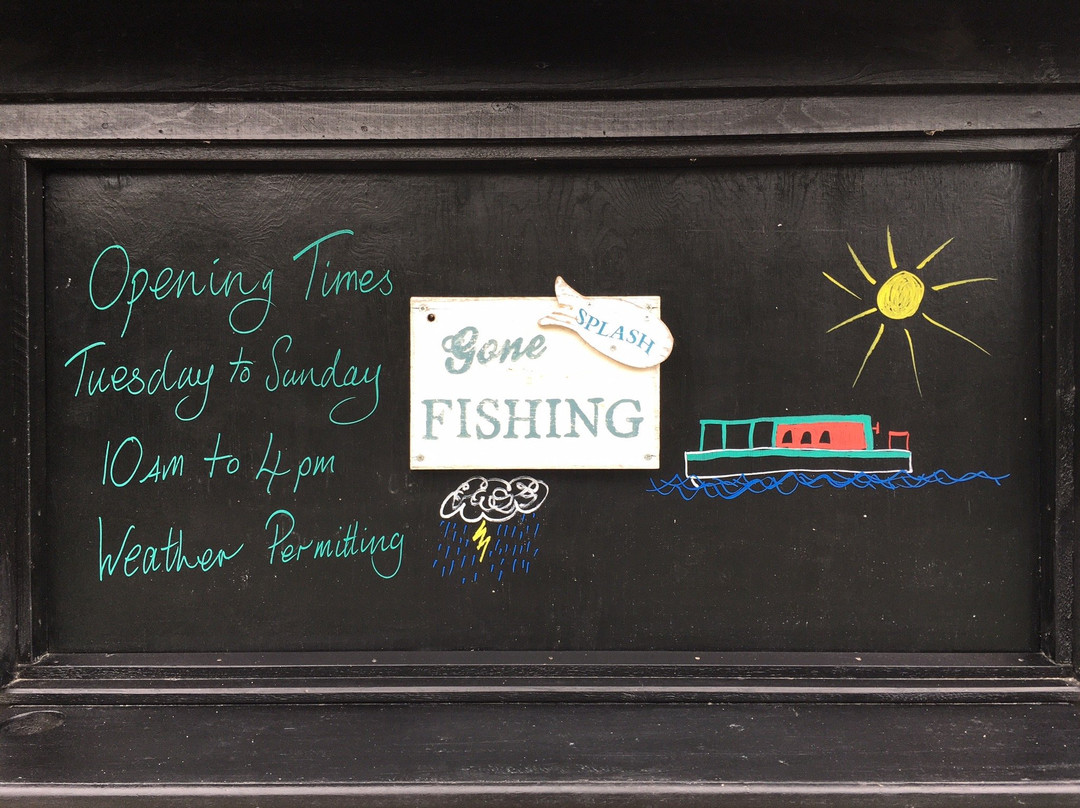 Opening Times
Tuesday to Sunday
10am to 4pm
Weather Permitting
Gone
FISHING
SPLASH